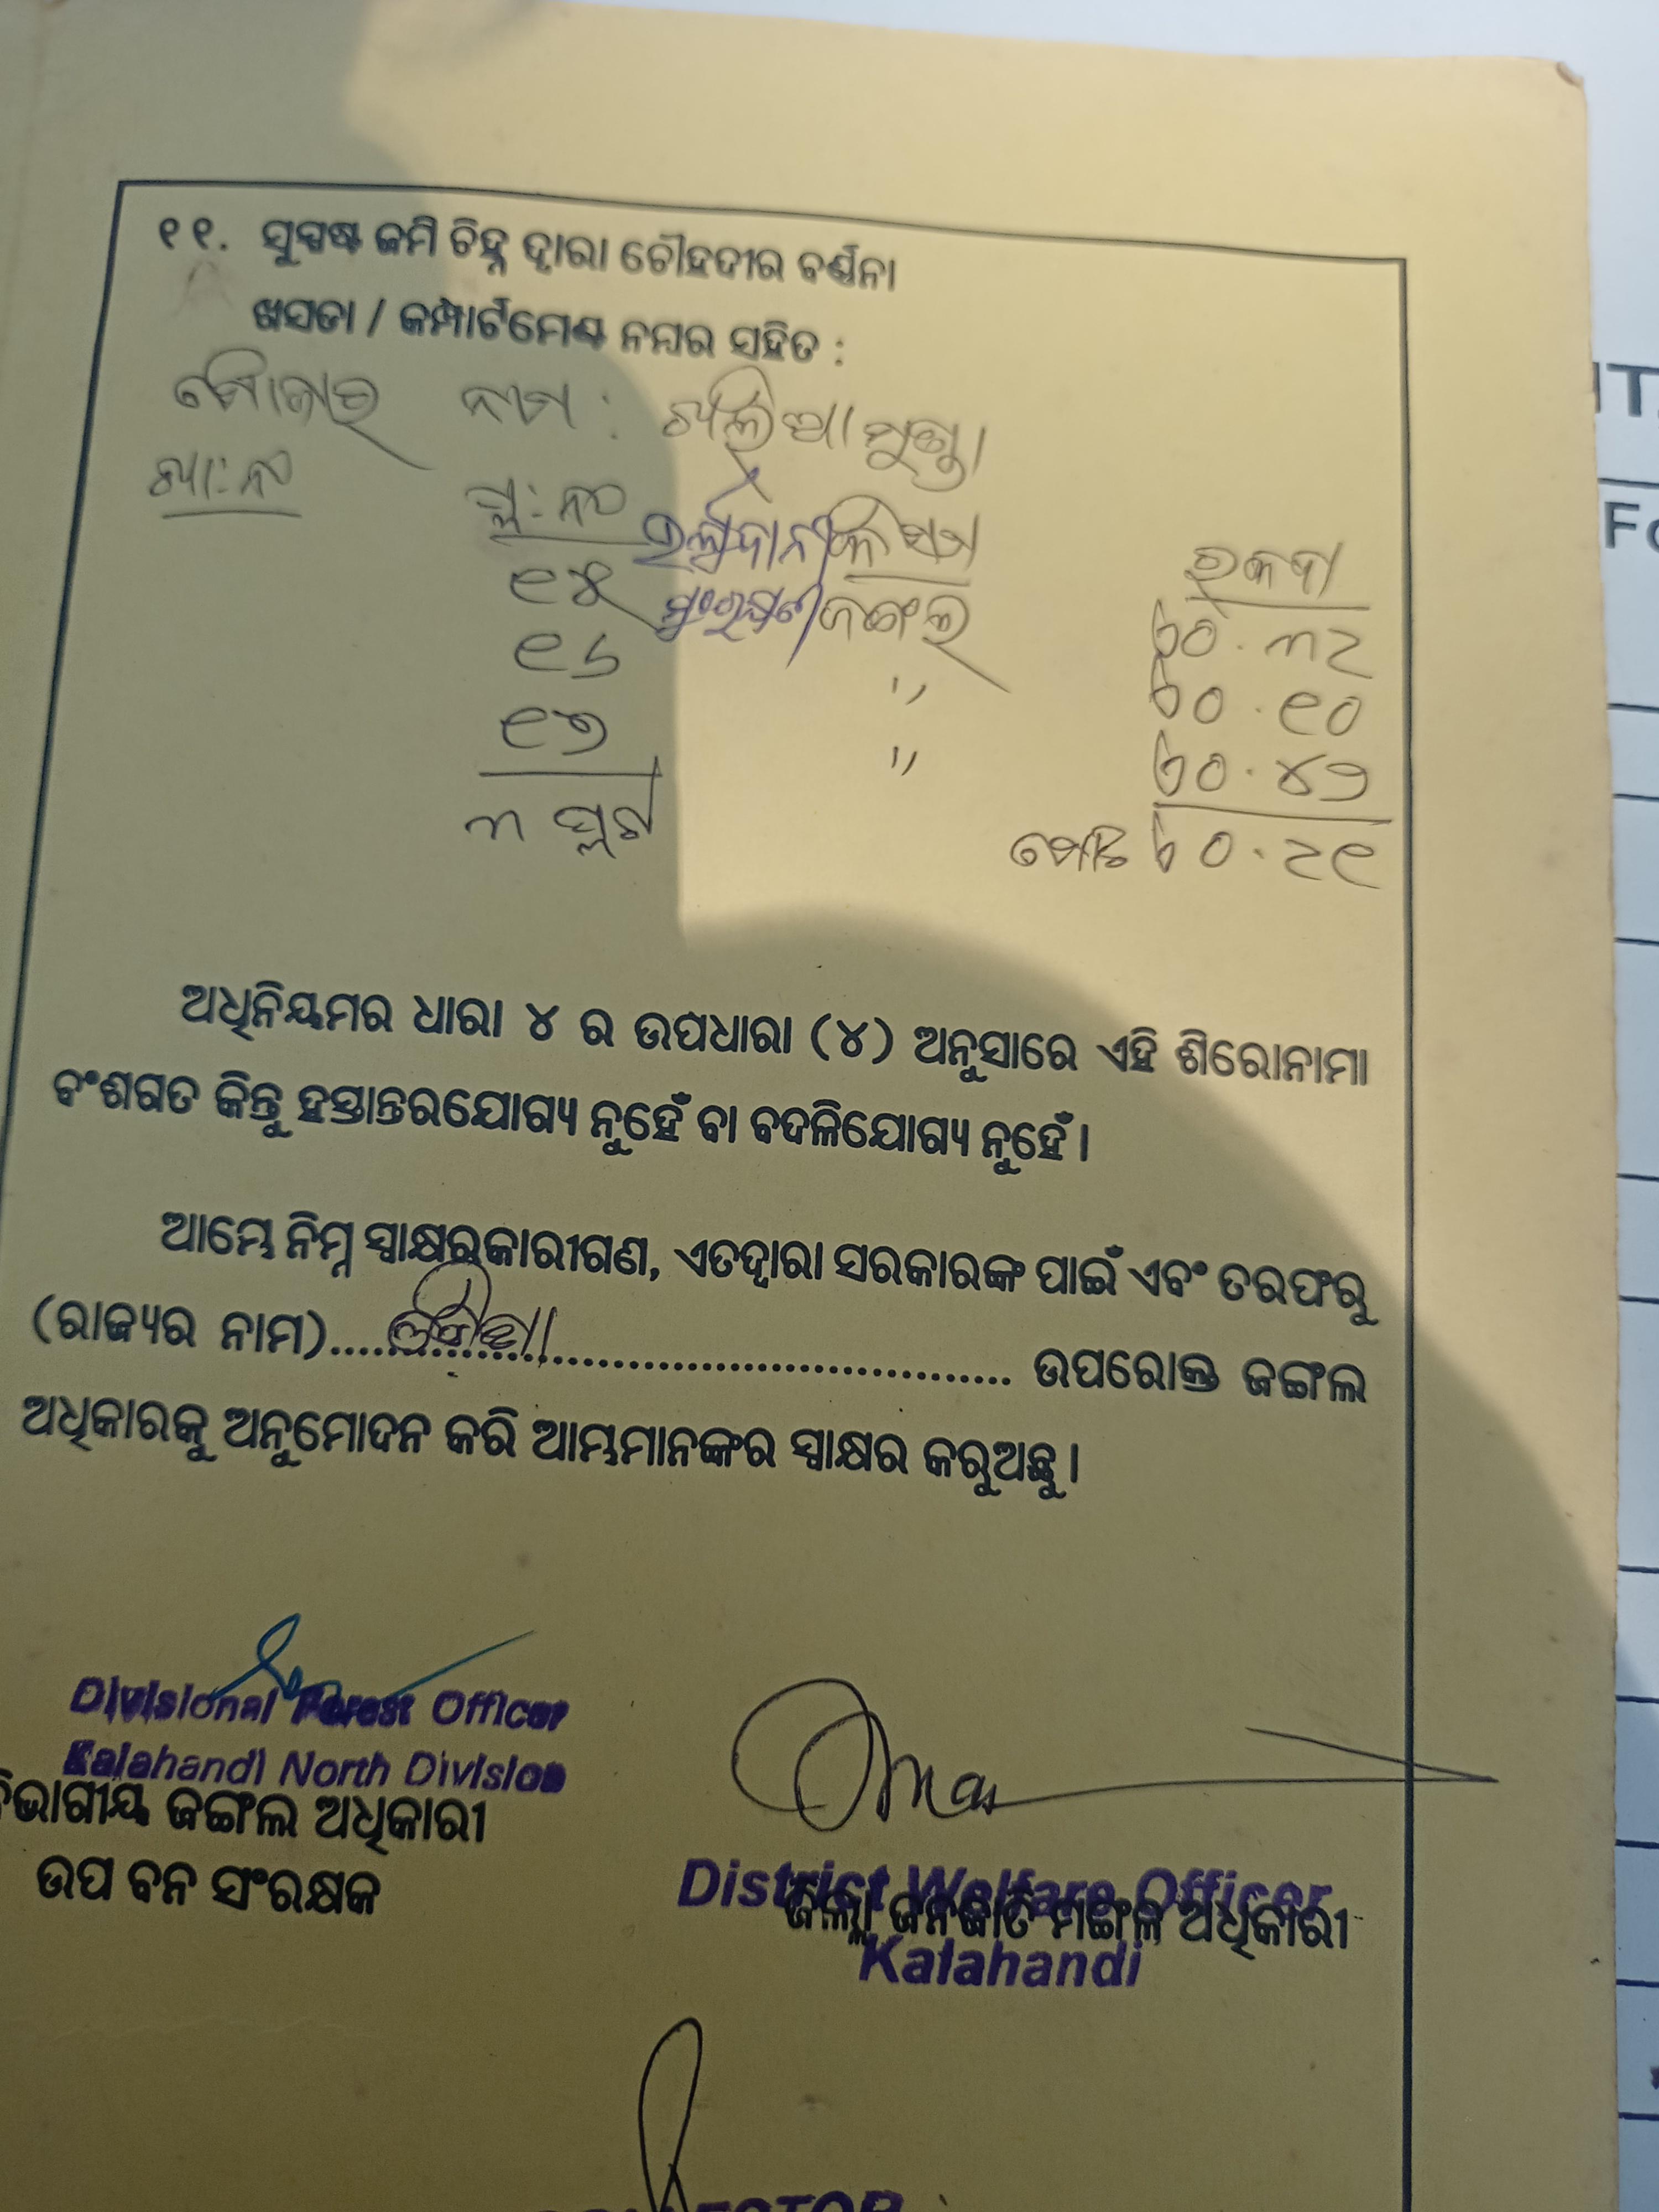 ୧୧. ସୁସ୍ପଷ୍ଟ ଜମି ଚିହ୍ନ ଦ୍ୱାରା ଚୌହଦୀର ବର୍ଣ୍ଣନା
ଖସଡା / କମ୍ପାର୍ଟମେଣ୍ଟ ନମ୍ବର ସହିତ :
ମୌଜାର ନାମ : ଖଲିଆମୁଣ୍ଡା
ଖା:ନଂ ପ୍ଲ:ନଂ କିସମ ରକବା
୯୪ ଜଙ୍ଗଲ ୦.୩୨
୯୬ " ୦.୯୦
୯୭ " ୦.୪୭
୩ ପ୍ଲଟ ମୋଟ ୦.୨୯
ଅଧିନିୟମର ଧାରା ୪ ର ଉପଧାରା (୪) ଅନୁସାରେ ଏହି ଶିରୋନାମା
ବଂଶଗତ କିନ୍ତୁ ହସ୍ତାନ୍ତରଯୋଗ୍ୟ ନୁହେଁ ବା ବଦଳିଯୋଗ୍ୟ ନୁହେଁ।
ଆମ୍ଭେ ନିମ୍ନ ସ୍ୱାକ୍ଷରକାରୀଗଣ, ଏତଦ୍ୱାରା ସରକାରଙ୍କ ପାଇଁ ଏବଂ ତରଫରୁ
(ରାଜ୍ୟର ନାମ)........ ଉପରୋକ୍ତ ଜଙ୍ଗଲ
ଅଧିକାରକୁ ଅନୁମୋଦନ କରି ଆମ୍ଭମାନଙ୍କର ସ୍ୱାକ୍ଷର କରୁଅଛୁ।
Divisional Forest Officer
Kalahandi North Division
ବିଭାଗୀୟ ଜଙ୍ଗଲ ଅଧିକାରୀ
ଉପ ବନ ସଂରକ୍ଷକ
District Welfare Officer
ଜିଲ୍ଲା ଜନଜାତି ମଙ୍ଗଳ ଅଧିକାରୀ
Kalahandi